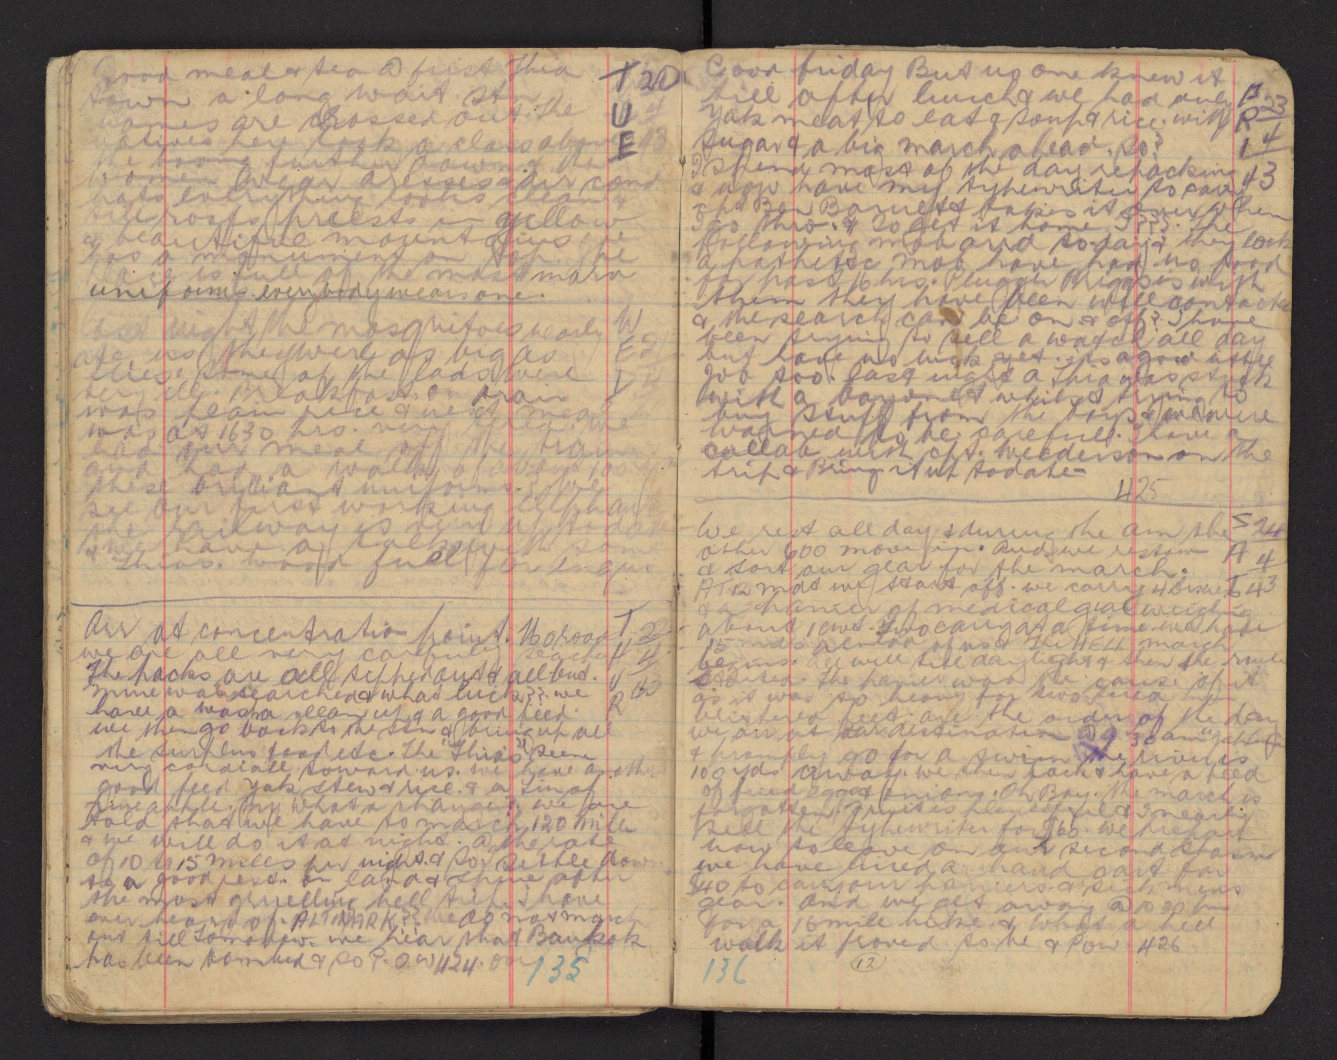 Good meal & tea @ first Thia
town a long wait
names are crossed out. the
natives here look a class above
the further down & the
women wear dresses
hats everything looks clean &
tile roofs priests in yellow
& beautiful mount
has a monument on top. The
place is full of the most
uniforms everybody wears one.
TUE 20 4 43
Last night the mosquitoes nearly
ate us they were as big as
flies some of the lads were
very ill. Breakfast on train
was plain rice & next meal
was at 1630 hrs. very
had our meal off the train
and had a walk
these brilliant uniforms. We
see our first working Elephant
the railway is
& we have a talk with some
Thias. wood fuel for
WED 21 4
Arr at concentration point. 1600
we are all very carefully
The packs are all tipped out & all but
mine was searched & what luck?? we
have a wash & clean up & a good feed.
we then go back to the & bring up all
the surplus foods etc. The "Thias" seem
very cordial toward us. we have another
good feed Yak stew & rice. & a tin of
pineapple. My what a change. we are
told that we have to march 120 miles
& we will do it at night. @ the rate
of 10 to 15 miles per night & so settle down
to a good rest. on land & after
the most gruelling hell trip I have
ever heard of. ALTMARK?? We do not march
out till tomorrow. we hear that Bankok
has been bombed & so? POW 424.
THUR 22 4 43
135
Good friday But no one knew it
till after lunch & we had only
Yak meat to eat & soup & rice. with
sugar & a big march ahead. So?
I spend most of the day repacking
& now have my typewriter to
Ben Barnett takes it when
I go thro. & to get it home, I ???. The
following mob arrd to-day & they look
a pathetic mob have had no food
for past 16 hrs. Pluggh Briggs is with
them they have been well contacted
& the search can be on & off? I have
been trying to sell a watch all day
but have no luck yet. its a good little
job too. Last night a Thia was stuck
with a bayonet whilst trying to
buy stuff from the boys & we were
warned to be careful. I have a
collab with cpt. Weederson on the
trip & Bring it up to date -
425
FRI 23 4 43
We rest all day & during the am the
other 600 move up. and we restow
& sort our gear for the march.
AT 12 mdt we start off. we carry 4
& a panier of medical gear weighing
about 1 cwt. two carry at a time we have
15 mls ahead of us & The HELL march
begins. all well till daylight & then the
started. The panier was the cause of it
as it was to heavy for two tired men
blistered feet are the order of the day
we arr at our destination @ 9 30 am
& promptly go for a swim the river is
100 yds away. we then pack & have a feed
of fried eggs & onions. Oh Boy. the march is
forgotten. Fruit is plentiful & I nearly
sell the typewriter for $60. we
now to leave on our second
we have hired a hand cart for
$40 to carry our paniers & sick mens
gear. and we get away @ 10 30 pm
for a 16 mile hike & what a hell
walk it proved to be & POW 426
SAT 24 4 43
136
12